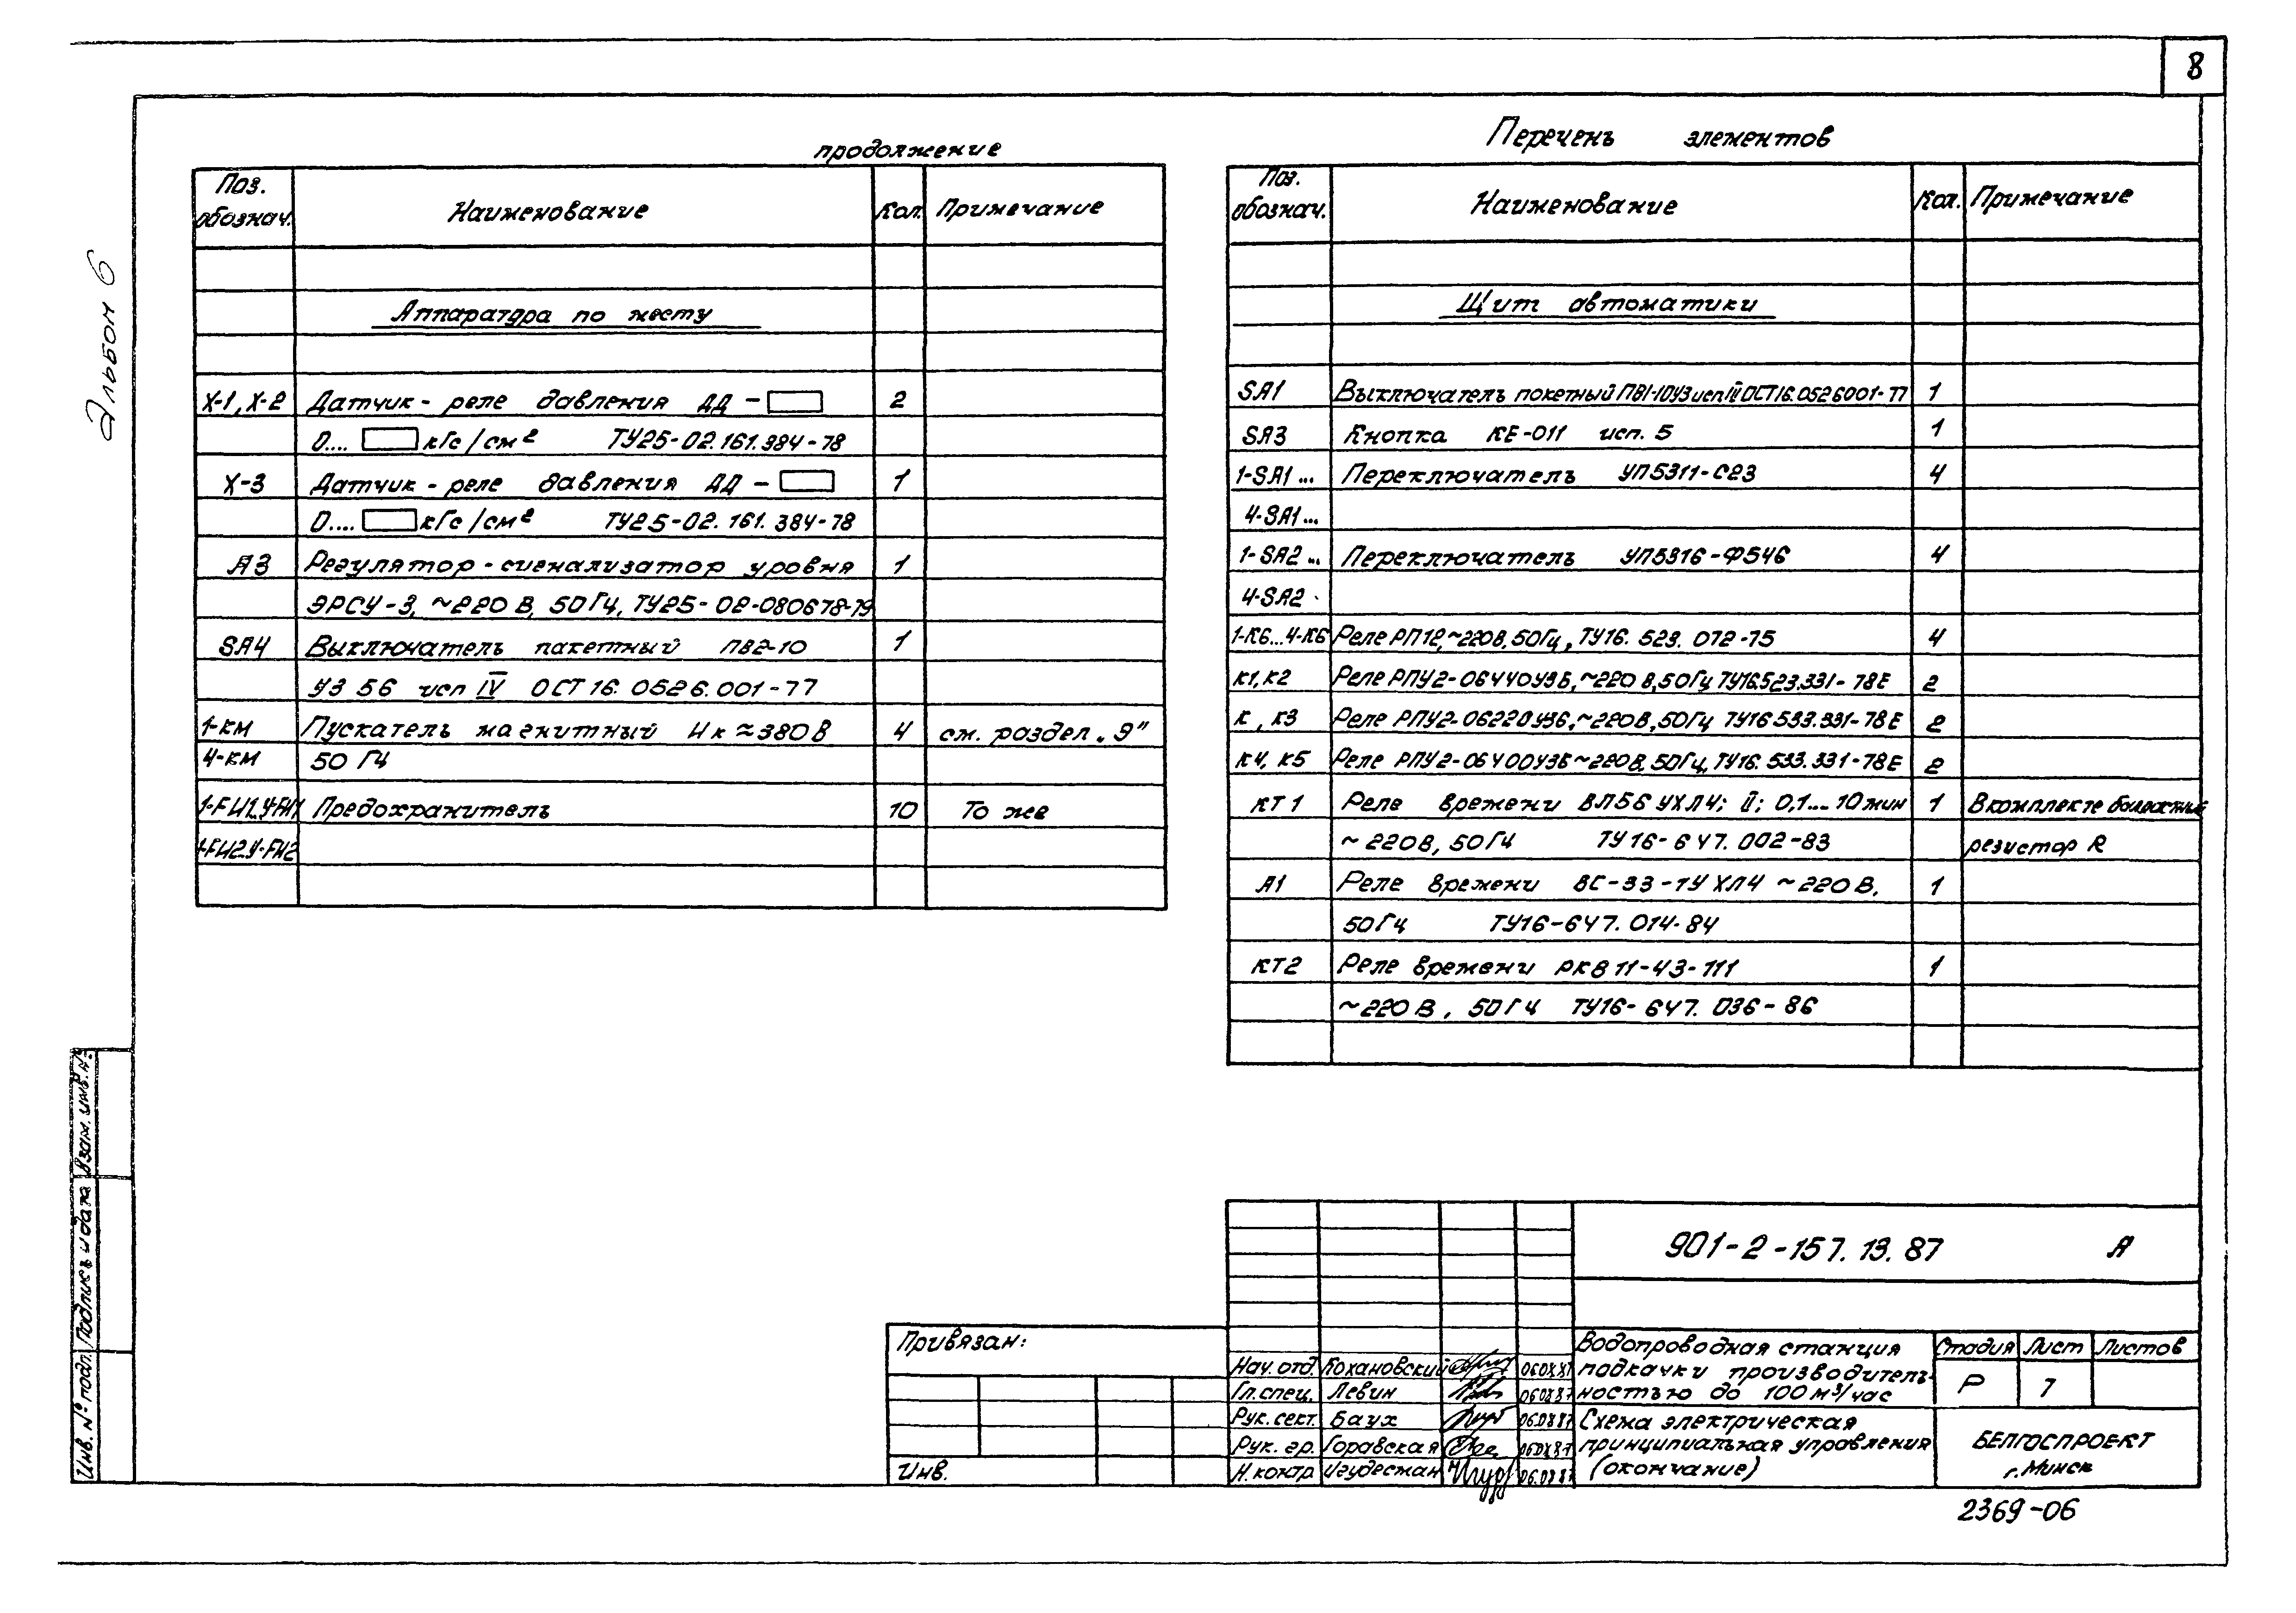 8
Альбом 6
продолжение
Поз. обознач. Наименование Кол. Примечание
Аппаратура по месту
Х-1, Х-2 Датчик - реле давления ДД - 2
0.... кГс/см² ТУ25-02.161.384-78
Х-3 Датчик - реле давления ДД - 1
0.... кГс/см² ТУ25-02.161.384-78
А3 Регулятор - сигнализатор уровня 1
ЭРСУ-3, ~220 В, 50 Гц, ТУ25-02-080678-79
SA4 Выключатель пакетный ПВ2-10 1
У3 56 исп IV ОСТ 16. 0526.001-77
1-КМ Пускатель магнитный Uк ≈380В 4 см. раздел „Э"
4-КМ 50 Гц
Предохранитель 10 То же
Перечень элементов
Поз. обознач. Наименование Кол. Примечание
Щит автоматики
SA1 Выключатель пакетный ПВ1-10У3 исп IV ОСТ16.0526001-77 1
SA3 Кнопка КЕ-011 исп. 5 1
1-SA1... Переключатель УП5311-С23 4
4-SA1...
1-SA2... Переключатель УП5316-Ф546 4
4-SA2
1-К6...4-К6 Реле РП12,~220В,50Гц, ТУ16. 523. 072-75 4
К1, К2 Реле РПУ2-06440У3Б,~220 В,50Гц ТУ16.523.331-78Е 2
К, К3 Реле РПУ2-06220У3Б,~220В,50Гц ТУ16 533.331-78Е 2
К4, К5 Реле РПУ2-06400У3Б~220В,50Гц,ТУ16.533.331-78Е 2
КТ1 Реле времени ВЛ56 УХЛ4; II; 0,1...10мин 1 В комплекте балластный
~220В, 50Гц ТУ16-647.002-83 резистор R
А1 Реле времени ВС-33-1УХЛ4 ~220В, 1
50Гц ТУ16-647.014-84
КТ2 Реле времени РКВ 11-43-111 1
~220В, 50Гц ТУ16-647.036-86
Взам. инв. №
Подпись и дата
Инв. № подл.
Привязан:
Инв.
901-2-157.13.87 А
Нач. отд. Кохановский 06.08.87
Гл. спец. Левин 06.08.87
Рук. сект. Баух 06.08.87
Рук. гр. Горавская 06.08.87
Н. контр. Игудесман 06.08.87
Водопроводная станция
подкачки производитель-
ностью до 100 м³/час
Схема электрическая
принципиальная управления
(окончание)
Стадия Лист Листов
Р 7
БЕЛГОСПРОЕКТ
г. Минск
2369-06